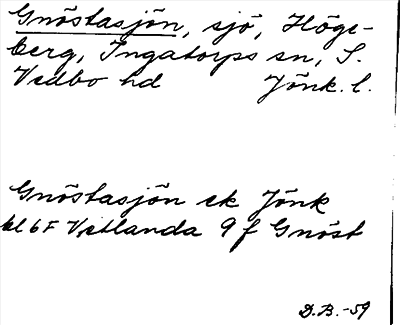 Gnöstasjön, sjö, Höge-
berg, Ingatorps sn, S.
Vedbo hd Jönk. l.
Gnöstasjön ek Jönk
bl 6F Vetlanda 9 f Gnöst
D.B.-59